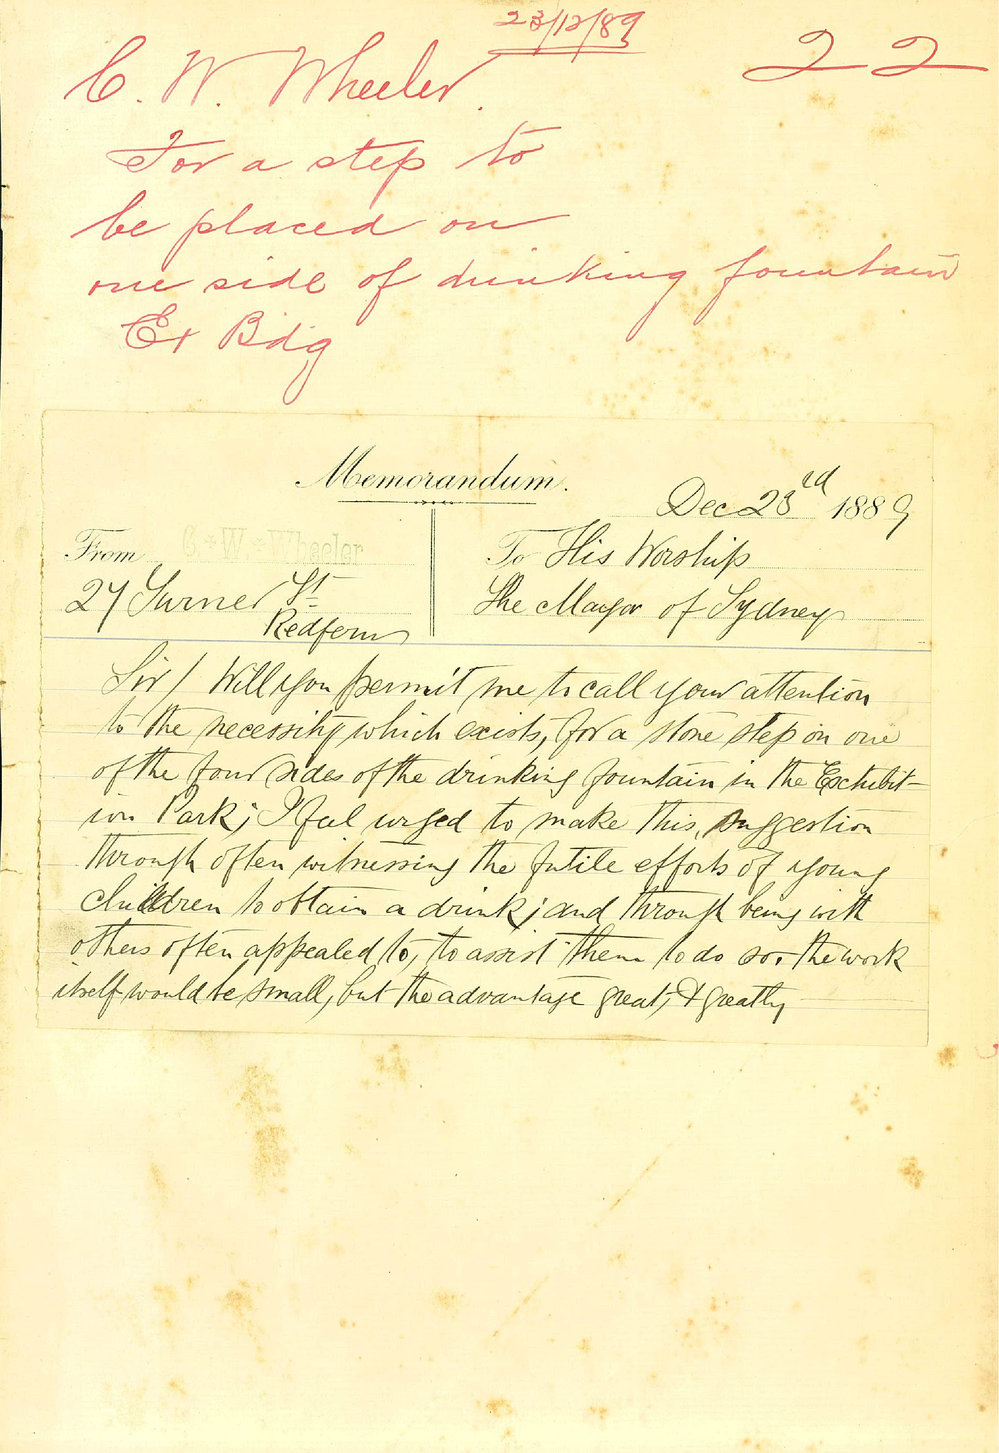 23/12/89
22
C. W. Wheeler.
For a step to
be placed on
one side of drinking fountain
Ex Bdg
Memorandum.
Dec 23rd 1889
From C. W. Wheeler
27 Turner St
Redfern
To His Worship
The Mayor of Sydney
Sir / Will you permit me to call your attention
to the necessity which exists, for a stone step on one
of the four sides of the drinking fountain in the Exhibit-
ion Park; I feel urged to make this, suggestion
through often witnessing the futile efforts of young
children to obtain a drink; and through being with
others often appealed to, to assist them to do so. - the work
itself would be small, but the advantage great, & greatly